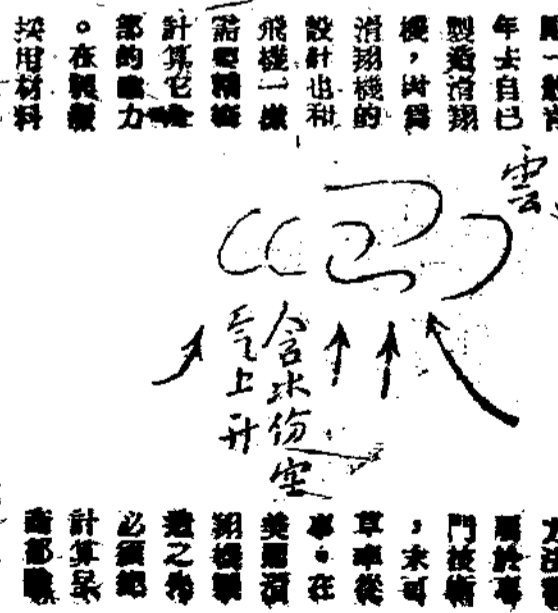 一般青
年去自己
製造滑翔
機，因爲
滑翔機的
設計也和
飛機一樣
需要精密
計算它全
部的應力
。在製
採用材料
雲
含水份空
气上升
方法
屬於專
門技術
，未可
草率從
事。在
美國滑
翔機製
造之先
必須把
計算呈
商部